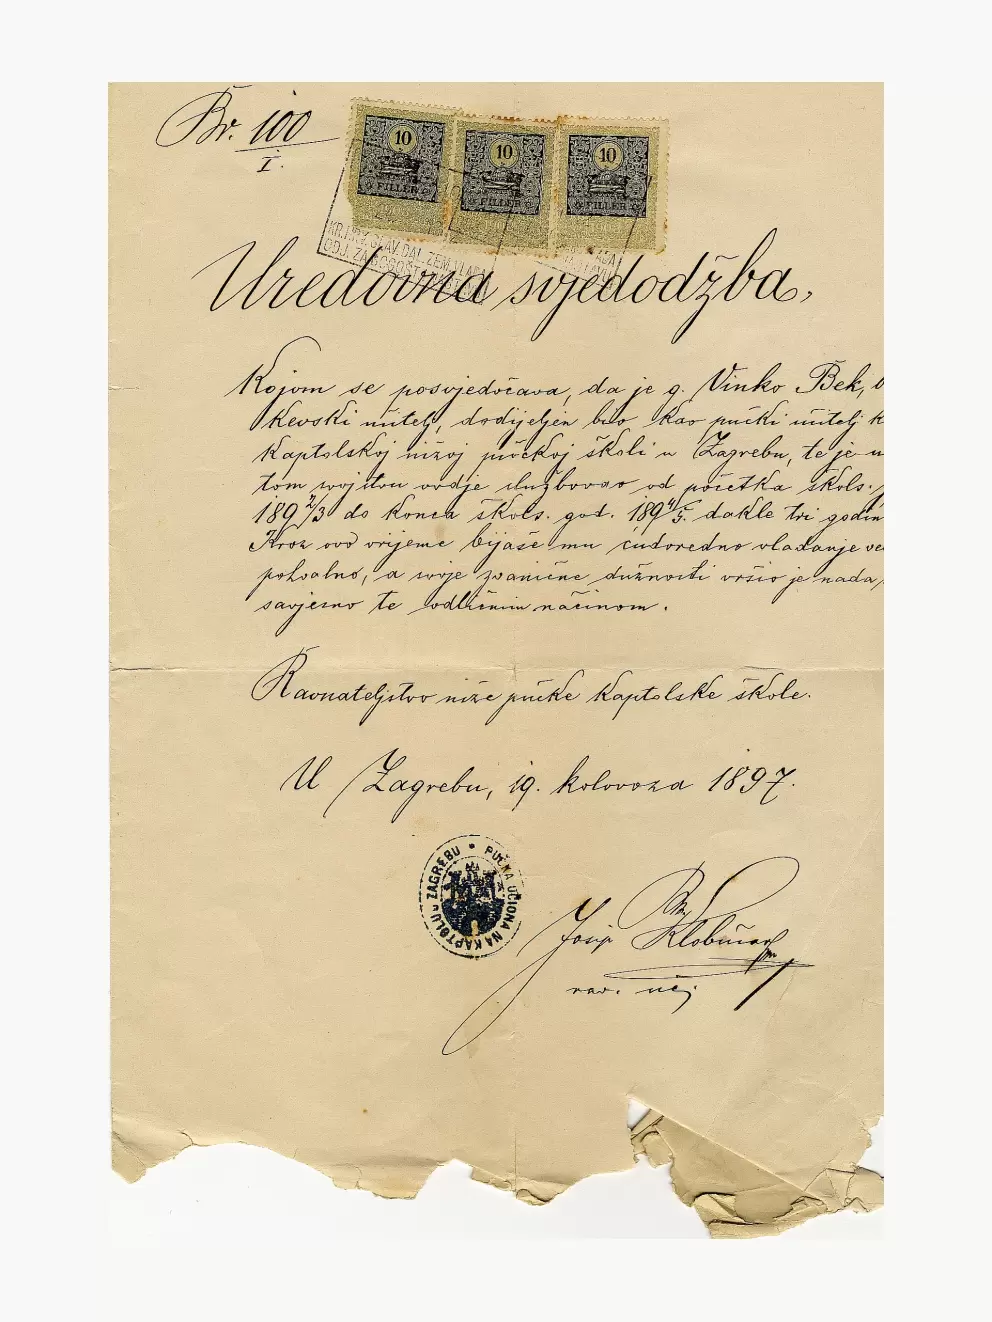 Br. 100
I.
10 10 10
FILLER FILLER FILLER
KR. HRV. SLAV. DAL. ZEM. VLADA
ODJ. ZA BOGOŠT.
Uredovna svjedodžba,
Kojom se posvjedočava, da je g. Vinko Bek,
kevski učitelj, dodijeljen bio kao pučki učitelj k
kaptolskoj nižoj pučkoj školi u Zagrebu, te je u
tom svojstvu ovdje službovao od početka škols.
1892/3 do konca škols. god. 1894/5. dakle tri godin
Kroz ovo vrijeme bijaše mu ćudoredno vladanje
pohvalno, a svoje zvanične dužnosti vršio je
savjesno te odličnim načinom.
Ravnateljstvo niže pučke kaptolske škole.
U Zagrebu, 19. kolovoza 1897.
PUČKA UČIONA NA KAPTOLU U ZAGREBU
Josip Klobučar
rav. uči